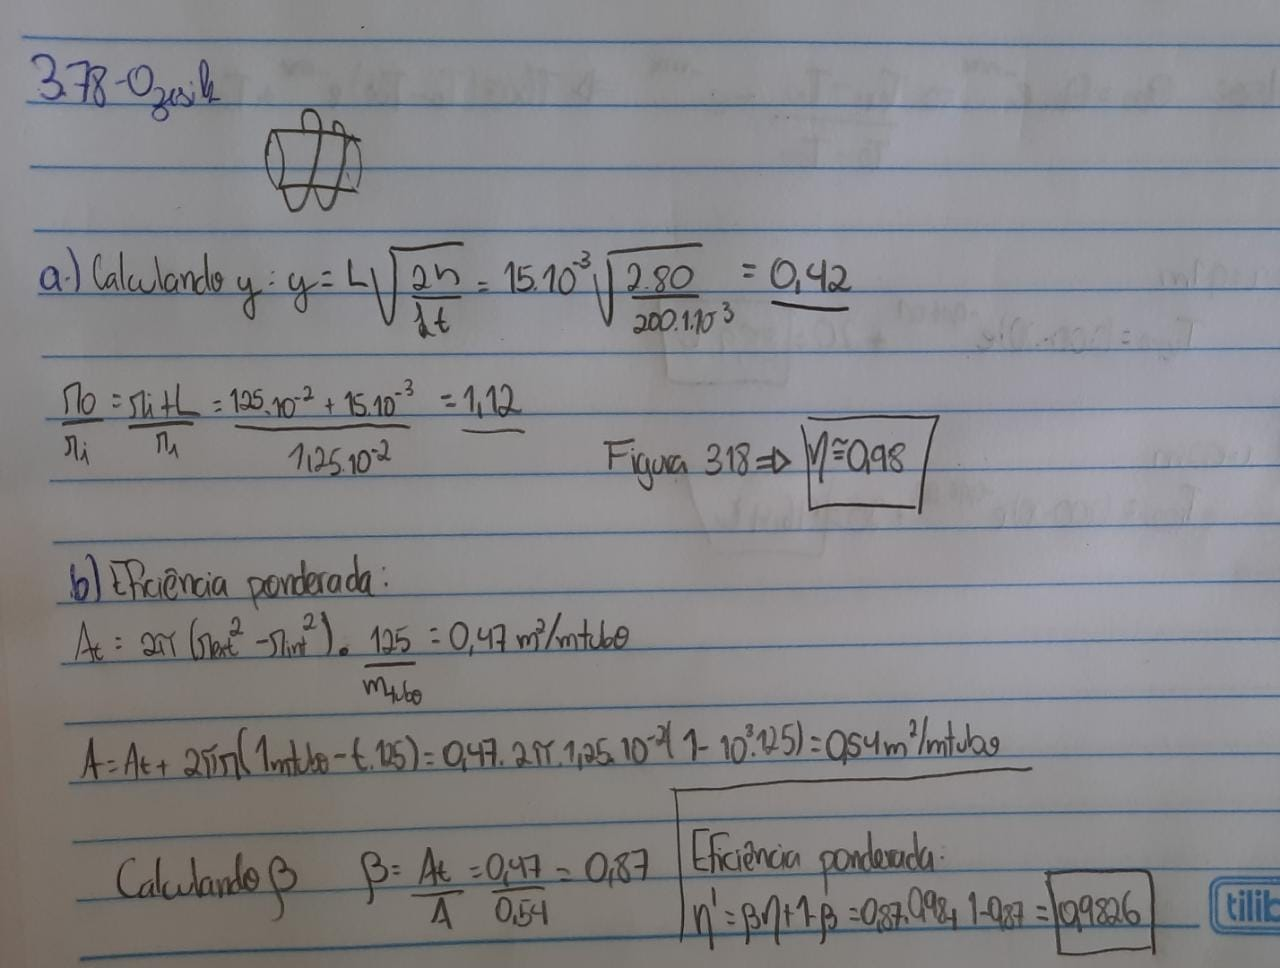 3.78-Ozisik
a.) Calculando y: y = L√(2h/λt) = 15.10⁻³ √(2.80/200.1.10⁻³) = 0,42
ro/ri = ri+L/ri = 1,25.10⁻² + 15.10⁻³/1,25.10⁻² = 1,12
Figura 3.18 ⇒ η ≅ 0,98
b) Eficiência ponderada:
At = 2π (rext² - rint²) . 125/mtubo = 0,47 m²/mtubo
A = At + 2πri(1mtubo - t.125) = 0,47. 2π.1,25.10⁻²(1-10⁻³.125) = 0,54 m²/mtubo
Calculando β β = At/A = 0,47/0,54 = 0,87
Eficiência ponderada:
η' = βη + 1-β = 0,87.0,98 + 1-0,87 = 0,9826
tilib